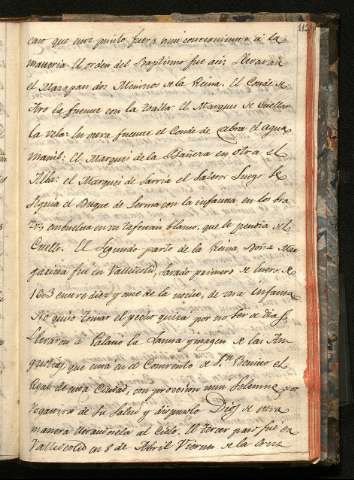 112
caso que este punto fuera mui concerniente à la
materia. El orden del Baptismo fue assi: llevaron
el Mazapan dos Meninos de la Reina. El Conde de
Aro la fuente con la toalla: El Marques de Cuellar
la vela: En otra fuente el Conde de Cabra el agua
manil: El Marques de la Bañera en otra el
Alba: el Marques de Sarria el Salero: luego se
seguia el Duque de Lerma con la infanta en los bra
zos embuelta en un tafetan blanco, que le pendia del
Cuello. El Segundo parto de la Reina Doña Mar
garita fue en Valladolid, savado primero de Enero de
1603 entre diez y once de la noche, de otra infanta.
No quiso tomar el pecho quiza por no ser de dias.
llevaron à Palacio la Santa ymagen de las An
gustias, que está en el Convento de Sn. Benito el
Real de esta Ciudad, con procesion mui Solemne
de su Salud y dispuesto Dios de otra
manera llevandosela al Cielo. El tercer parto fue en
Valladolid en 8 de Abril Viernes de la Cruz